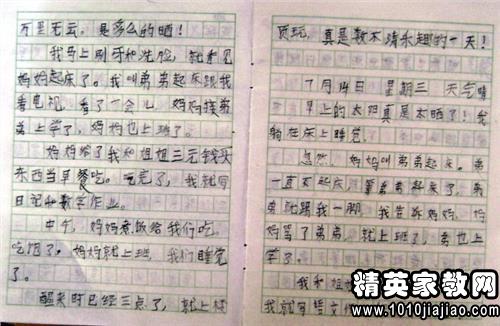 万里无云，是多么的晒！
我马上刷牙和洗脸，就看见
妈妈起床了。我叫弟弟起床跟我
看电视，看了一会儿，妈妈接弟
弟上学了，妈妈也上班了。
妈妈给了我和姐姐三元钱买
东西当早餐吃。吃完了，我就写
日记和数学作业。
中午，妈妈煮饭给我们吃，
吃饱了，妈妈就上班，我们睡觉
了。
醒来时已经三点了，就上楼
顶玩，真是数不清乐趣的一天！
7月14日 星期三 天气晴
早上的太阳真是太晒了！我
躺在床上睡觉
忽然，妈妈叫弟弟起床。弟
一直不起床，弟弟起来了，弟
弟就踢我一脚，我告诉妈妈，妈
妈骂了弟弟，就上班了，弟也上
学了
我和姐
我就写
精英家教网
www.1010jiajiao.com